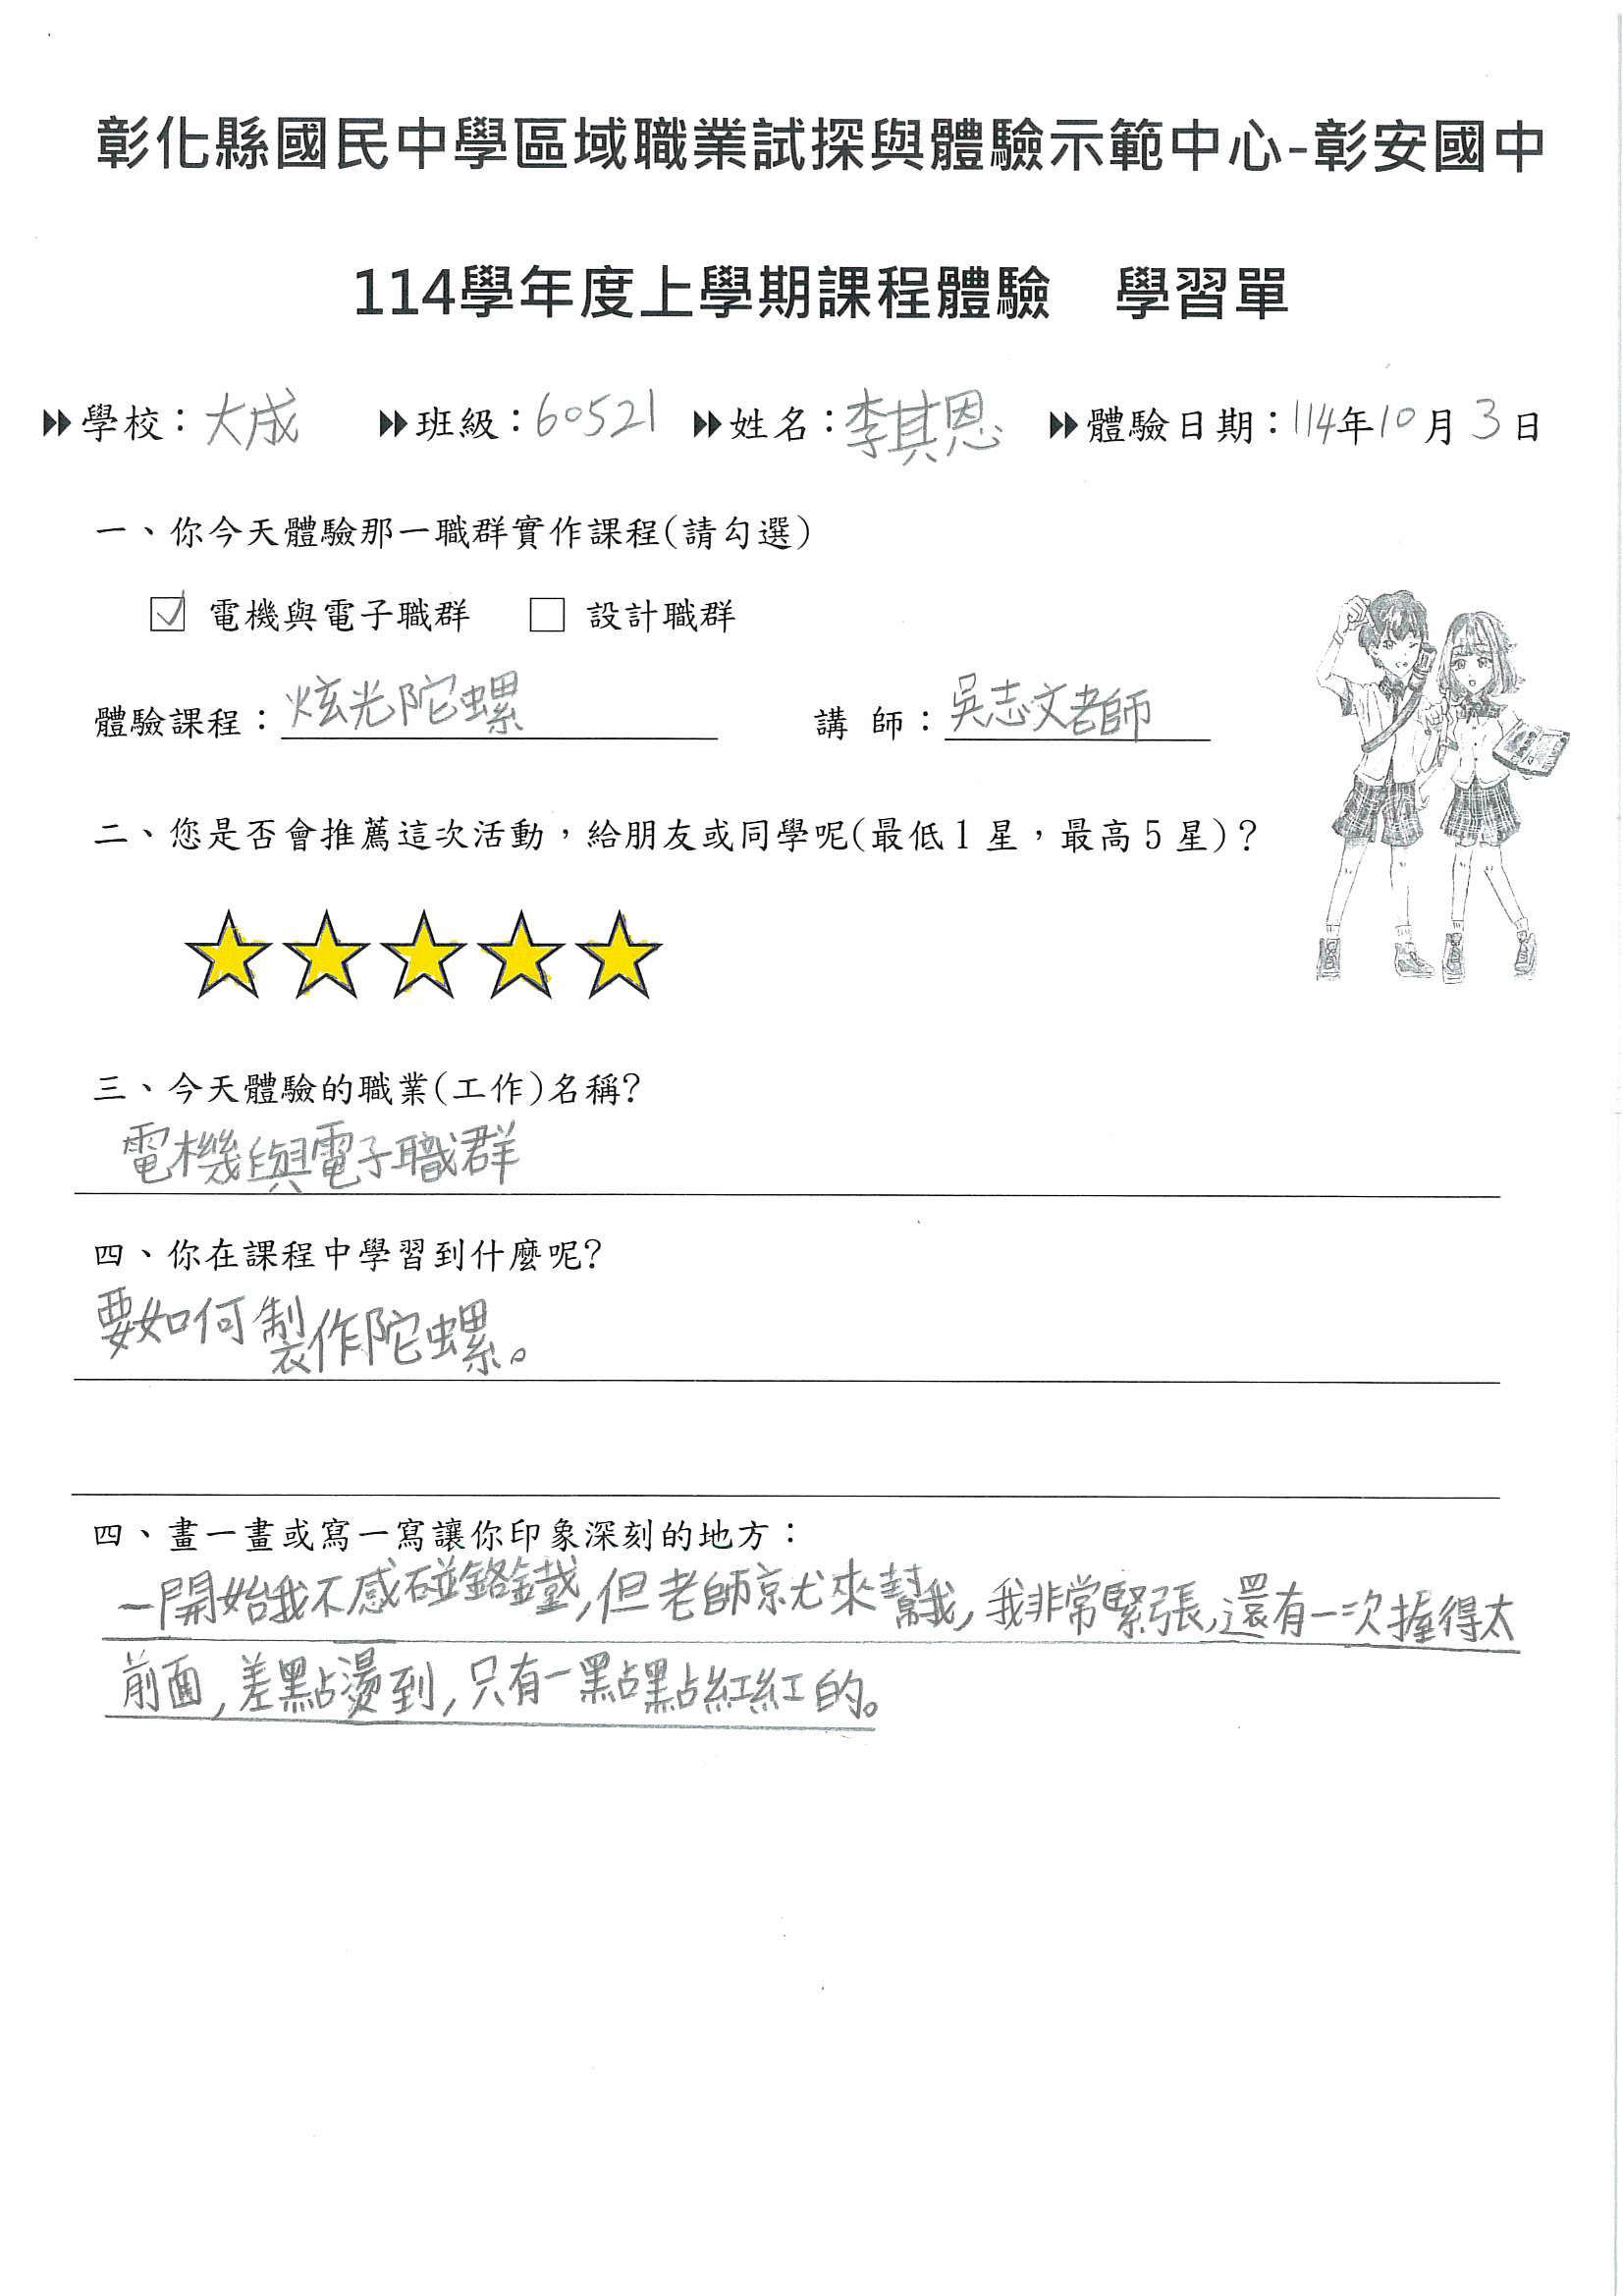 彰化縣國民中學區域職業試探與體驗示範中心-彰安國中
114學年度上學期課程體驗 學習單
學校：大成 班級：60521 姓名：李其恩 體驗日期：114年10月3日
一、你今天體驗那一職群實作課程(請勾選)
☑ 電機與電子職群 □ 設計職群
體驗課程：炫光陀螺 講 師：吳志文老師
二、您是否會推薦這次活動，給朋友或同學呢(最低1星，最高5星)？
三、今天體驗的職業(工作)名稱?
電機與電子職群
四、你在課程中學習到什麼呢?
要如何製作陀螺。
四、畫一畫或寫一寫讓你印象深刻的地方：
一開始我不感碰鉻鐵,但老師就來幫我,我非常緊張,還有一次握得太
前面,差點燙到,只有一點點紅紅的。